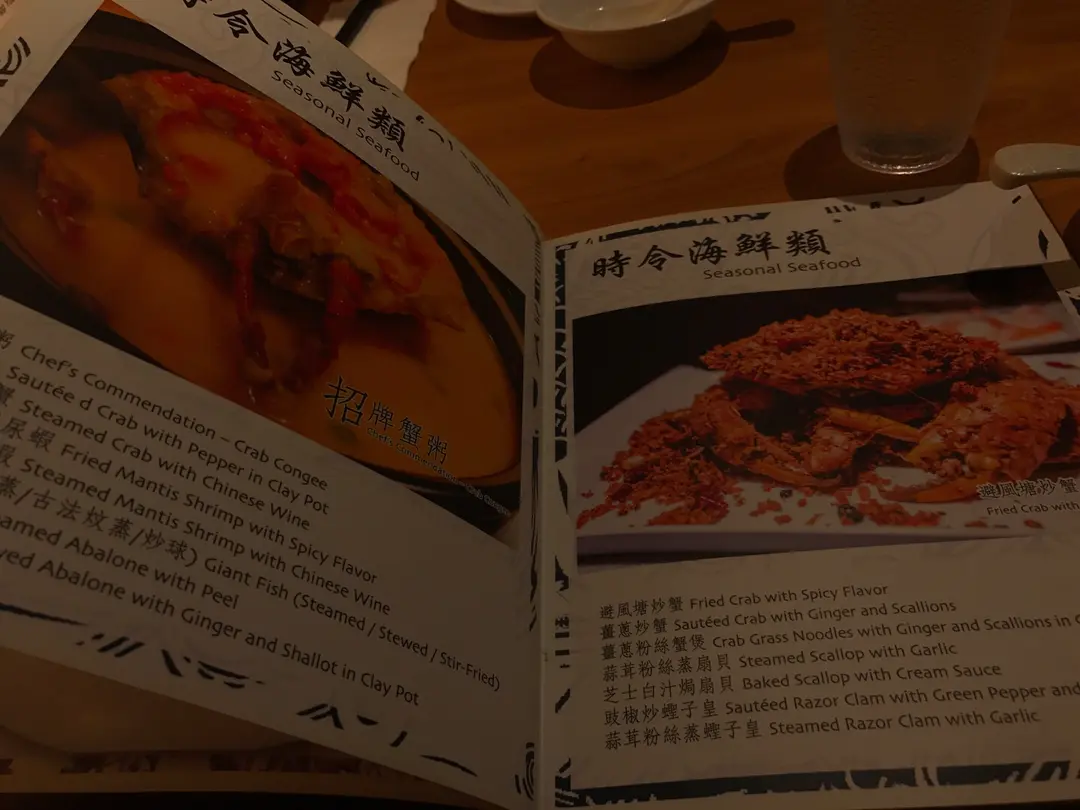 時令海鮮類
Seasonal Seafood
招牌蟹粥
Chef's Commendation – Crab Congee
粥 Chef's Commendation – Crab Congee
Sautée d Crab with Pepper in Clay Pot
蟹 Steamed Crab with Chinese Wine
尿蝦 Fried Mantis Shrimp with Spicy Flavor
蝦 Steamed Mantis Shrimp with Chinese Wine
蒸/古法炆蒸/炒球) Giant Fish (Steamed / Stewed / Stir-Fried)
Abalone with Peel
Abalone with Ginger and Shallot in Clay Pot
時令海鮮類
Seasonal Seafood
避風塘炒蟹
Fried Crab with
避風塘炒蟹 Fried Crab with Spicy Flavor
薑蔥炒蟹 Sautéed Crab with Ginger and Scallions
薑蔥粉絲蟹煲 Crab Grass Noodles with Ginger and Scallions in
蒜茸粉絲蒸扇貝 Steamed Scallop with Garlic
芝士白汁焗扇貝 Baked Scallop with Cream Sauce
豉椒炒蟶子皇 Sautéed Razor Clam with Green Pepper and
蒜茸粉絲蒸蟶子皇 Steamed Razor Clam with Garlic